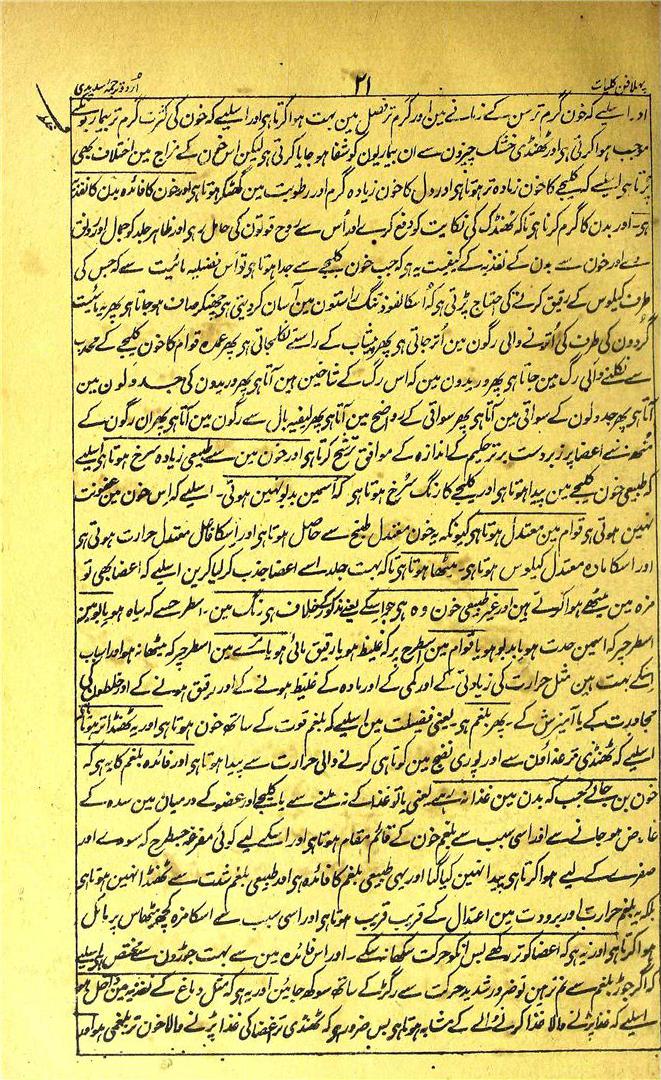 پہلا فن کلیات ۲۱ اردو ترجمہ سدیدی
اور اسلیے کہ خون گرم تر سن کے زمانے مین اور گرم تر فصل مین بہت ہوا کرتا ہی اور اسلیے کہ خون کی کثرت گرم تر بیماریونکے
موجب ہوا کرتی ہی اور ٹھنڈی خشک چیزون سے ان بیماریون کو شفا ہو جایا کرتی ہی لیکن اس خون کے مزاج مین اختلاف بھی
پڑتا ہی اسلیے کہ کلیجے کا خون زیادہ تر ہوتا ہی اور دل کا خون زیادہ گرم اور رطوبت مین کمتر ہوتا ہی اور خون کا فائدہ بدن کا تغذیہ
ہی۔ اور بدن کا گرم کرنا ہی تاکہ ٹھنڈک کی نکایت کو دفع کرے اور اُس سے روح قوتون کی حامل رہی اور ظاہر جلد کو جمال اور رونق
دے اور خون سے بدن کے تغذیہ کے کیفیت یہ ہی کہ جب خون کلیجے سے جدا ہوتا ہی تو اُس فضلیہ مائیت سے کہ جس کی
طرف کیلوس کے رقیق کرنے کی احتیاج پڑتی ہی کہ اُسکا نفوذ تنگ راستون مین آسان کر دیتی ہی چھنکر صاف ہو جاتا ہی پھر یہ مائیت
گردون کی طرف کی اُترنے والی رگون مین اُتر جاتی ہی پھر پیشاب کے راستے نکلجاتی ہی پھر عمدہ قوام کا خون کلیجے کے محدب
سے نکلنے والی رگ مین جاتا ہی پھر وریدون مین کہ اس رگ کے شاخین ہین آتا ہی پھر وریدون کی جدولون مین
آتا ہی پھر جدولون کے سواقی مین آتا ہی پھر سواقی کے رواضع مین آتا ہی پھر لیفیہ بال سے رگون مین آتا ہی پھر ان رگون کے
منھ سے اعضا پر زبردست برتر حکیم کے اندازہ کے موافق ترشح کرتا ہی اور خون مین سے طبیعی زیادہ سرخ ہوتا ہی اسلیے
کہ طبیعی خون کلیجے مین پیدا ہوتا ہی اور کلیجے کا رنگ سرخ ہوتا ہی کہ اُسمین بدبو نہین ہوتی۔ اسلیے کہ اس خون مین عفونت
نہین ہوتی ہی قوام مین معتدل ہوتا ہی کیونکہ یہ خون معتدل طبخ سے حاصل ہوتا ہی اور اِسکا فاعل معتدل حرارت ہوتی ہی
اور اسکا مادہ معتدل کیلوس ہوتا ہی۔ میٹھا ہوتا ہی تاکہ بہت جلد اسے اعضا جذب کر لیا کرین اسلیے کہ اعضا بھی تو
مزہ مین میٹھے ہوا کرتے ہین اور غیر طبیعی خون وہ ہی جو اسکے یعنے مذکور کے خلاف ہی رنگ مین۔ اسطرح سے کہ سیاہ ہو یا
اسطرح پر کہ اُسمین حدت ہو یا بدبو ہو یا قوام مین اسطرح پر کہ غلیظ ہو یا رقیق مائی ہو یا مزے مین اسطرح پر کہ میٹھا نہو اور اسباب
اسکے بہت ہین مثل حرارت کی زیادتی کے اور کمی کے اور مادہ کے غلیظ ہونے کے اور رقیق ہونے کے اور خلطون کی
مجاورت کے یا آمیزش کے۔ پھر بلغم ہی یعنی فضیلت مین اسلیے کہ بلغم قوت کے ساتھ خون ہوتا ہی اور یہ ٹھنڈا تر ہوتا ہی
اسلیے کہ ٹھنڈی تر غذاؤن سے اور پوری نضج مین کوتاہی کرنے والی حرارت سے پیدا ہوتا ہی اور فائدہ بلغم کا یہ ہی کہ
خون بن جائے جب کہ بدن مین غذا نہ رہے یعنی یا تو غذا کے نہ ملنے سے یا کلیجے اور عضو کے درمیان مین سدہ کے
عارض ہو جانے سے اور اسی سبب سے بلغم خون کے قائم مقام ہوتا ہی اور اسکے لیے کوئی مفرغہ جسطرح کہ سودے اور
صفرے کے لیے ہوا کرتا ہی پیدا نہین کیا گیا اور یہی طبیعی بلغم کا فائدہ ہی اور طبیعی بلغم شدت سے ٹھنڈا نہین ہوتا ہی
بلکہ یہ بلغم حرارت اور برودت مین اعتدال کے قریب قریب ہوتا ہی اور اسی سبب سے اسکا مزہ کچھ مٹھاس پر مائل
ہوا کرتا ہی اور یہ ہی کہ اعضا کو تر رکھے پس انکو حرکت سکھا نسکے۔ اور اس فائدہ مین سے بہت جوڑون سے مختص ہی اسلیے
کہ اگر جوڑ بلغم سے تر نرہین تو ضرور شدید حرکت سے رگڑ کے ساتھ سوکھ جائین اور یہ ہی کہ مثل دماغ کے تغذیہ مین داخل ہو
اسلیے کہ غذا پڑنے والا غذا کرنے والے کے مشابہ ہوتا ہی پس ضرور ہی کہ ٹھنڈی تر عضا کی غذا پڑنے والا خون تر بلغمی ہو اور